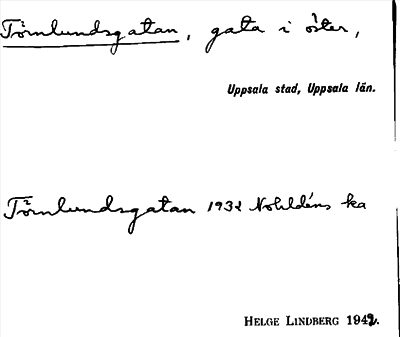 Törnlundsgatan, gata i öster,
Uppsala stad, Uppsala län.
Törnlundsgatan 1932 Nohldéns ka
HELGE LINDBERG 1942.